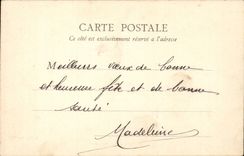 CARTE POSTALE
Ce côté est exclusivement réservé à l'adresse
Meilleurs vœux de bonne
et heureuse fête et de bonne
santé
Madeleine